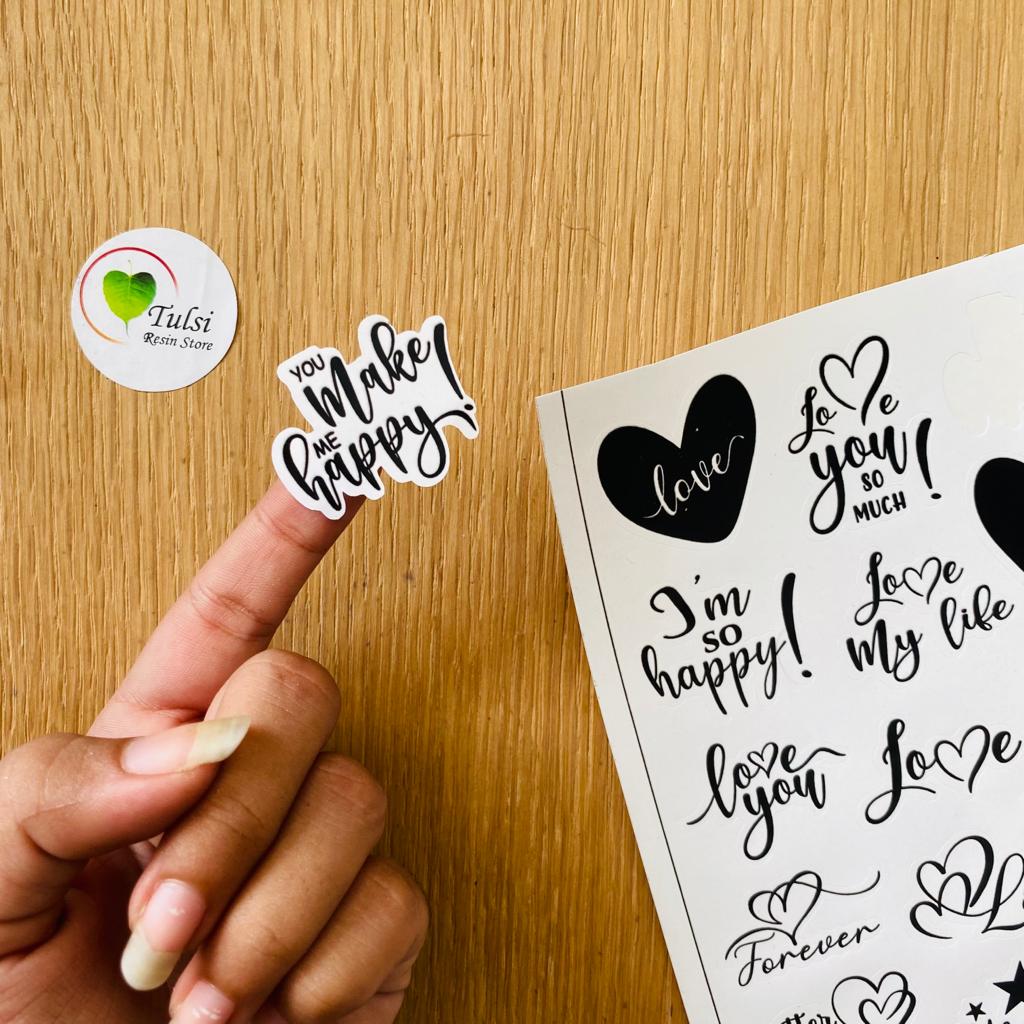 Tulsi
Resin Store
YOU
Make
ME
happy!
love
Love
you!
SO
MUCH
I'm
SO
happy!
Love
My life
love
you
Love
Forever